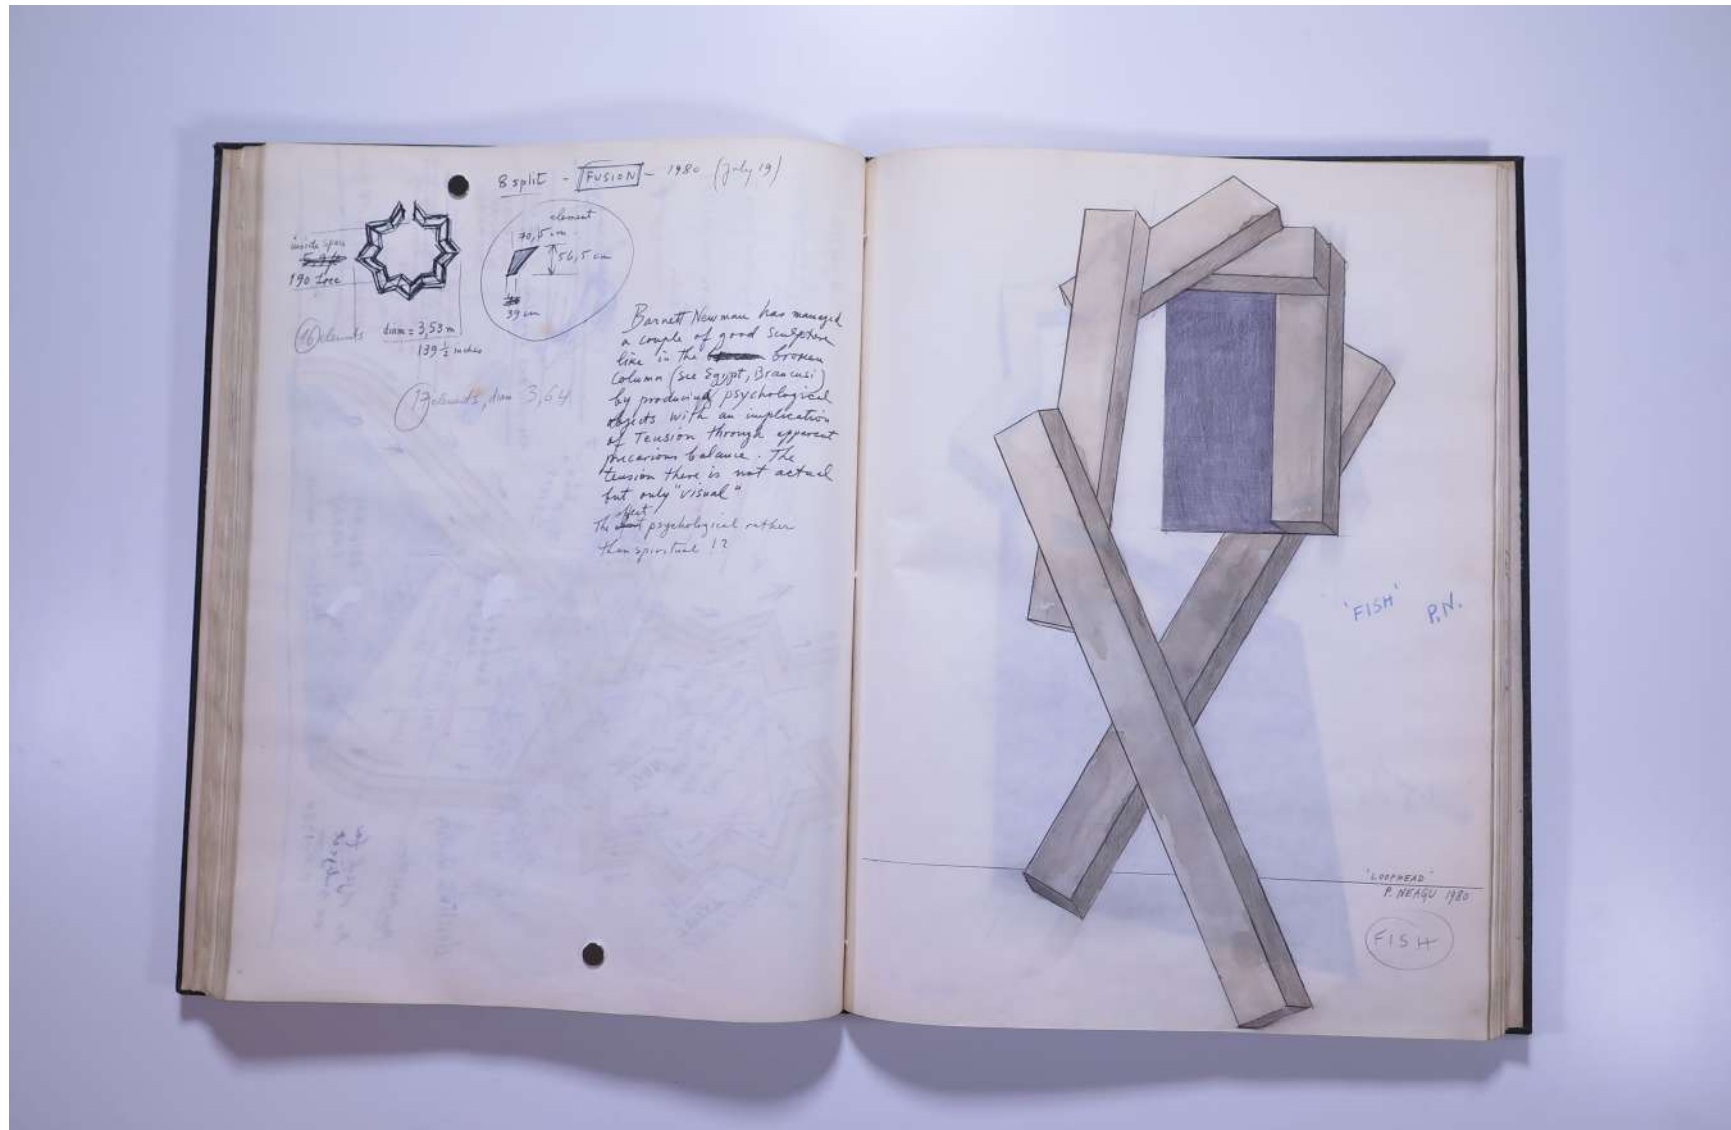 8 split - FUSION - 1980 (July 19)
inside space
190
16 elements
diam = 3,53 m
139 ½ inches
17 elements, diam 3,64
element
70,5 cm
56,5 cm
39 cm
Barnett Newman has managed
a couple of good sculpture
like in the broken
Column (see Egypt, Brancusi)
by producing psychological
objects with an implication
of Tension through apparent
precarious balance. The
tension there is not actual
but only "visual"
The effect psychological rather
than spiritual !?
'FISH' P.N.
'LOOPHEAD'
P. NEAGU 1980
FISH